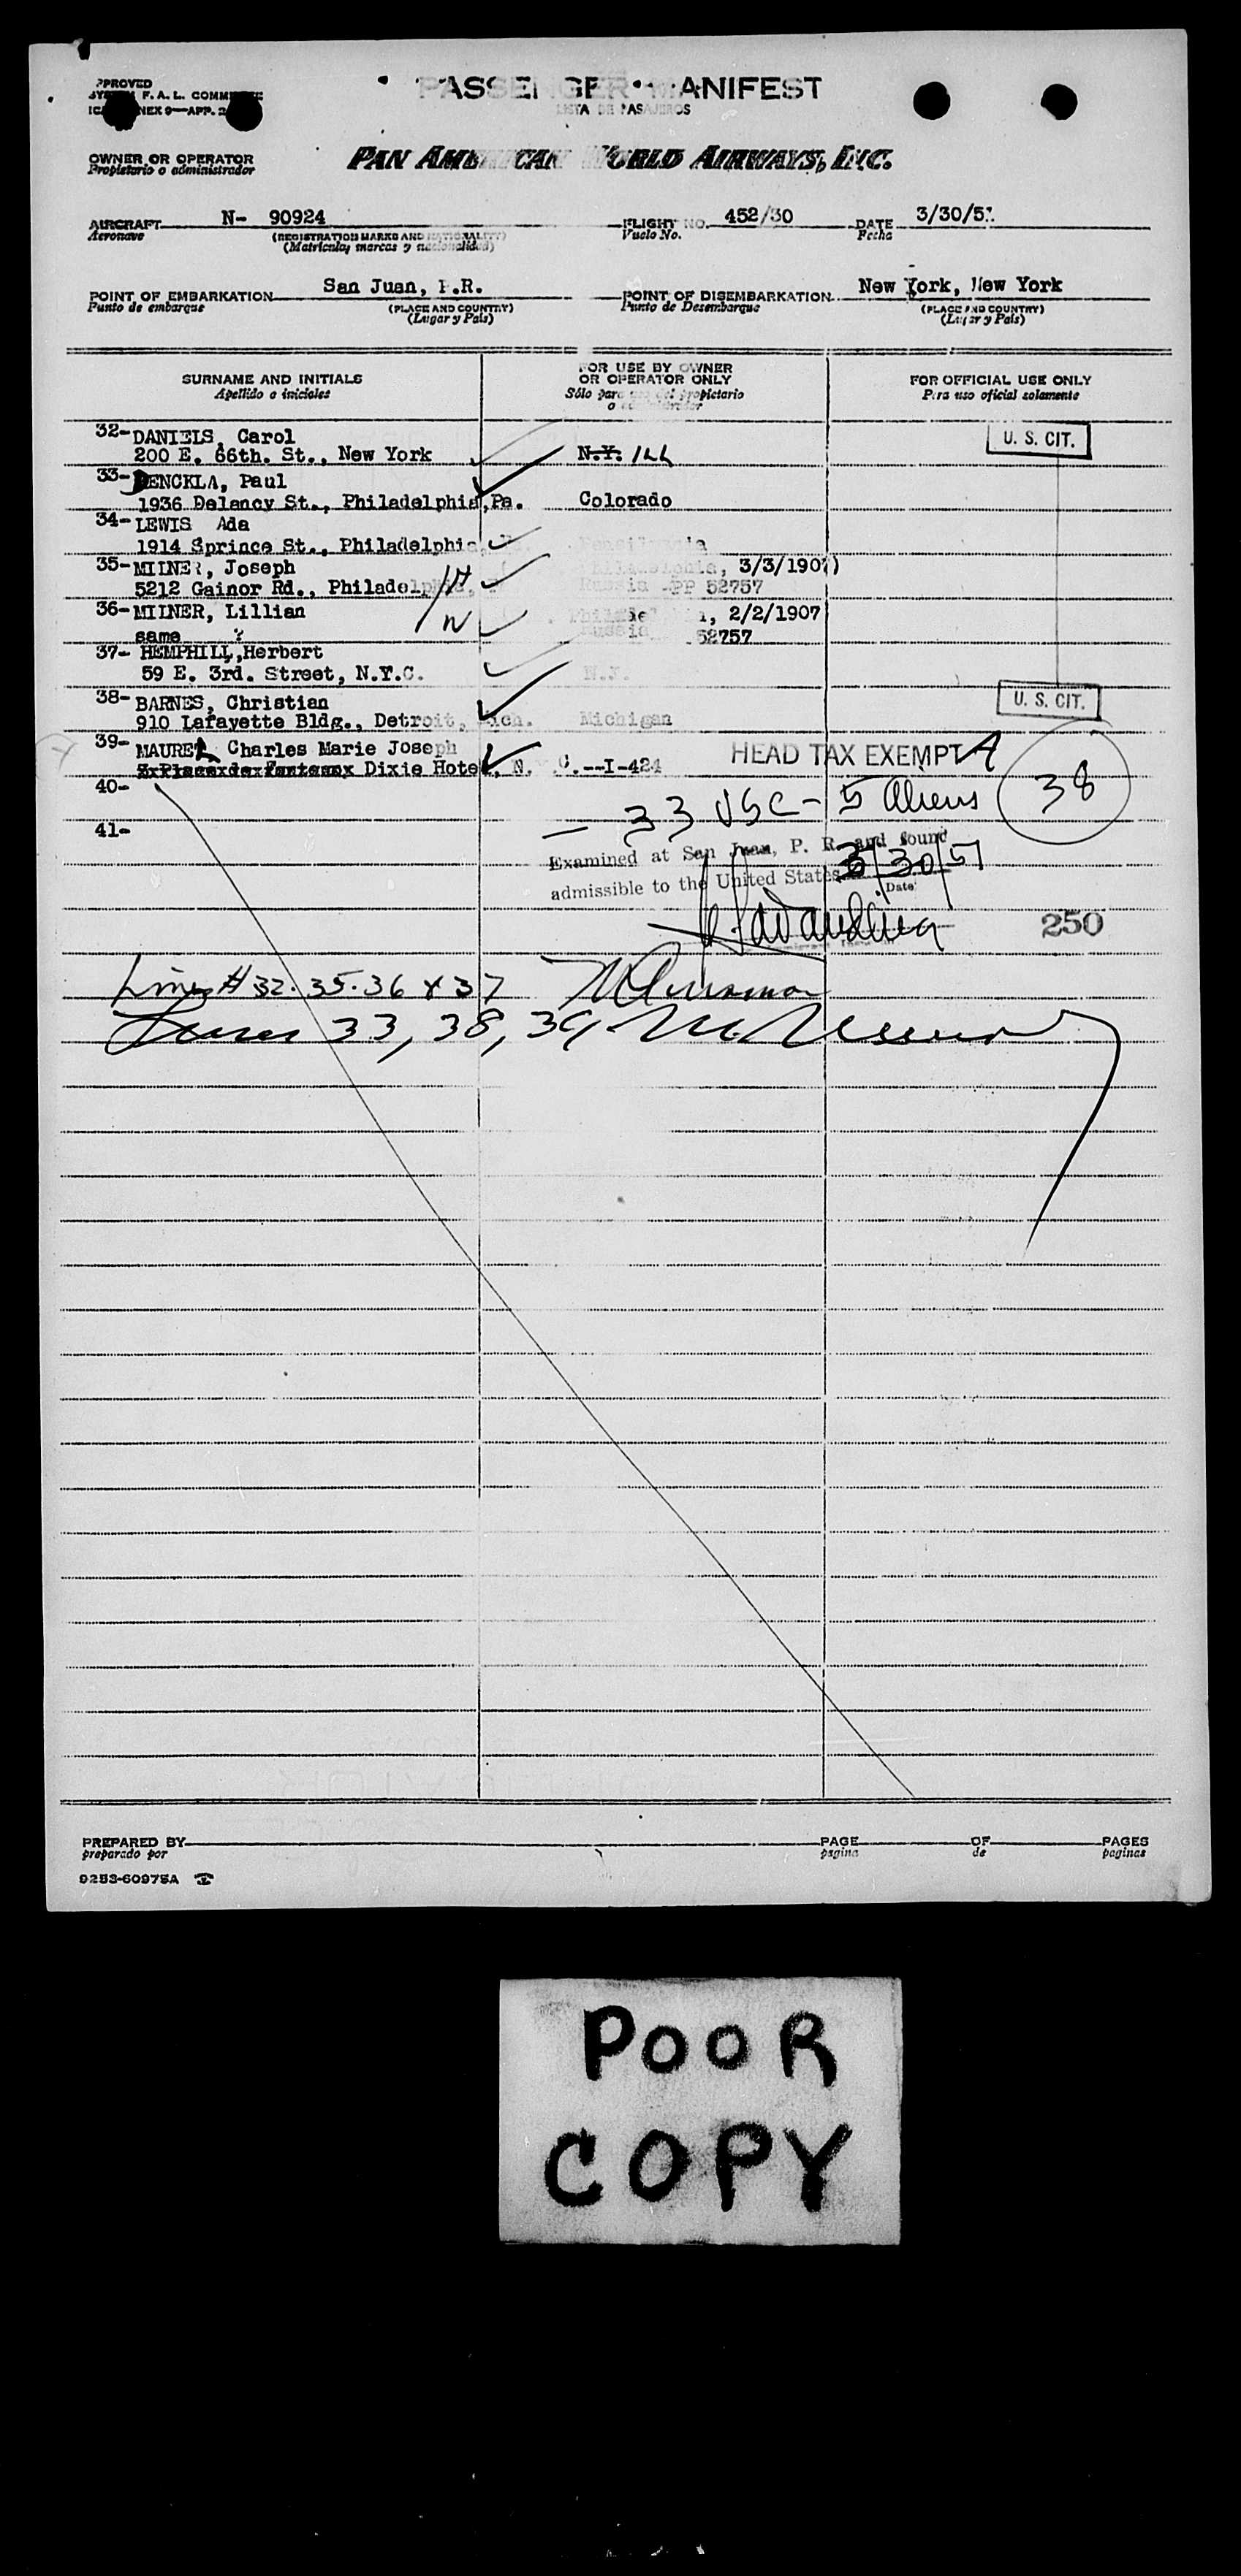 PASSENGER MANIFEST
LISTA DE PASAJEROS
PPROVED
F. A. L. COMM
NEX 9—APP. 2
OWNER OR OPERATOR
Propietario o administrador
PAN AMERICAN WORLD AIRWAYS, INC.
AIRCRAFT N- 90924 FLIGHT NO. 452/30 DATE 3/30/51
Aeronave (REGISTRATION MARKS AND NATIONALITY) Vuelo No. Fecha
(Matricula, marcas y nacionalidad)
POINT OF EMBARKATION San Juan, P.R. POINT OF DISEMBARKATION New York, New York
Punto de embarque (PLACE AND COUNTRY) Punto de Desembarque (PLACE AND COUNTRY)
(Lugar y País) (Lugar y País)
SURNAME AND INITIALS FOR USE BY OWNER OR OPERATOR ONLY FOR OFFICIAL USE ONLY
Apellido e iniciales Sólo para uso del propietario o Para uso oficial solamente
32- DANIELS, Carol U. S. CIT.
200 E. 66th. St., New York N.Y.
33- DENCKLA, Paul
1936 Delancy St., Philadelphia, Pa. Colorado
34- LEWIS Ada
1914 Sprince St., Philadelphia, Pensilvania
35- MILNER, Joseph Philadelphia, 3/3/1907)
5212 Gainor Rd., Philadelphia, Russia -PP 52757
36- MILNER, Lillian Philadel , 2/2/1907
same ? Russia 52757
37- HEMPHILL, Herbert
59 E. 3rd. Street, N.Y.C. N.Y.
38- BARNES, Christian U. S. CIT.
910 Lafayette Bldg., Detroit, Mich. Michigan
39- MAUREL, Charles Marie Joseph HEAD TAX EXEMPT A
Dixie Hotel, N. C.--I-424
40- 38
— 33 USC - 5 Aliens
41-
Examined at San Juan, P. R. and found
admissible to the United States 3/30/51
Date
250
Lines # 32. 35. 36 & 37
Lines 33, 38, 39
PREPARED BY PAGE OF PAGES
preparado por pagina de paginas
9253-60975A
POOR
COPY